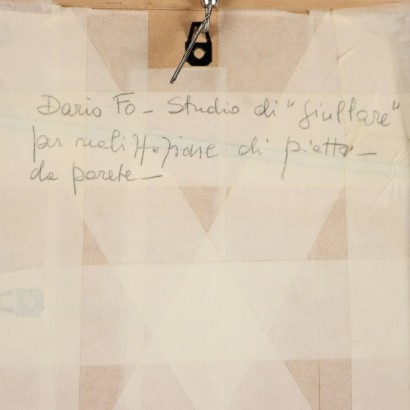 Dario Fo - Studio di "Giullare"
per realizzazione di piatto -
da parete -